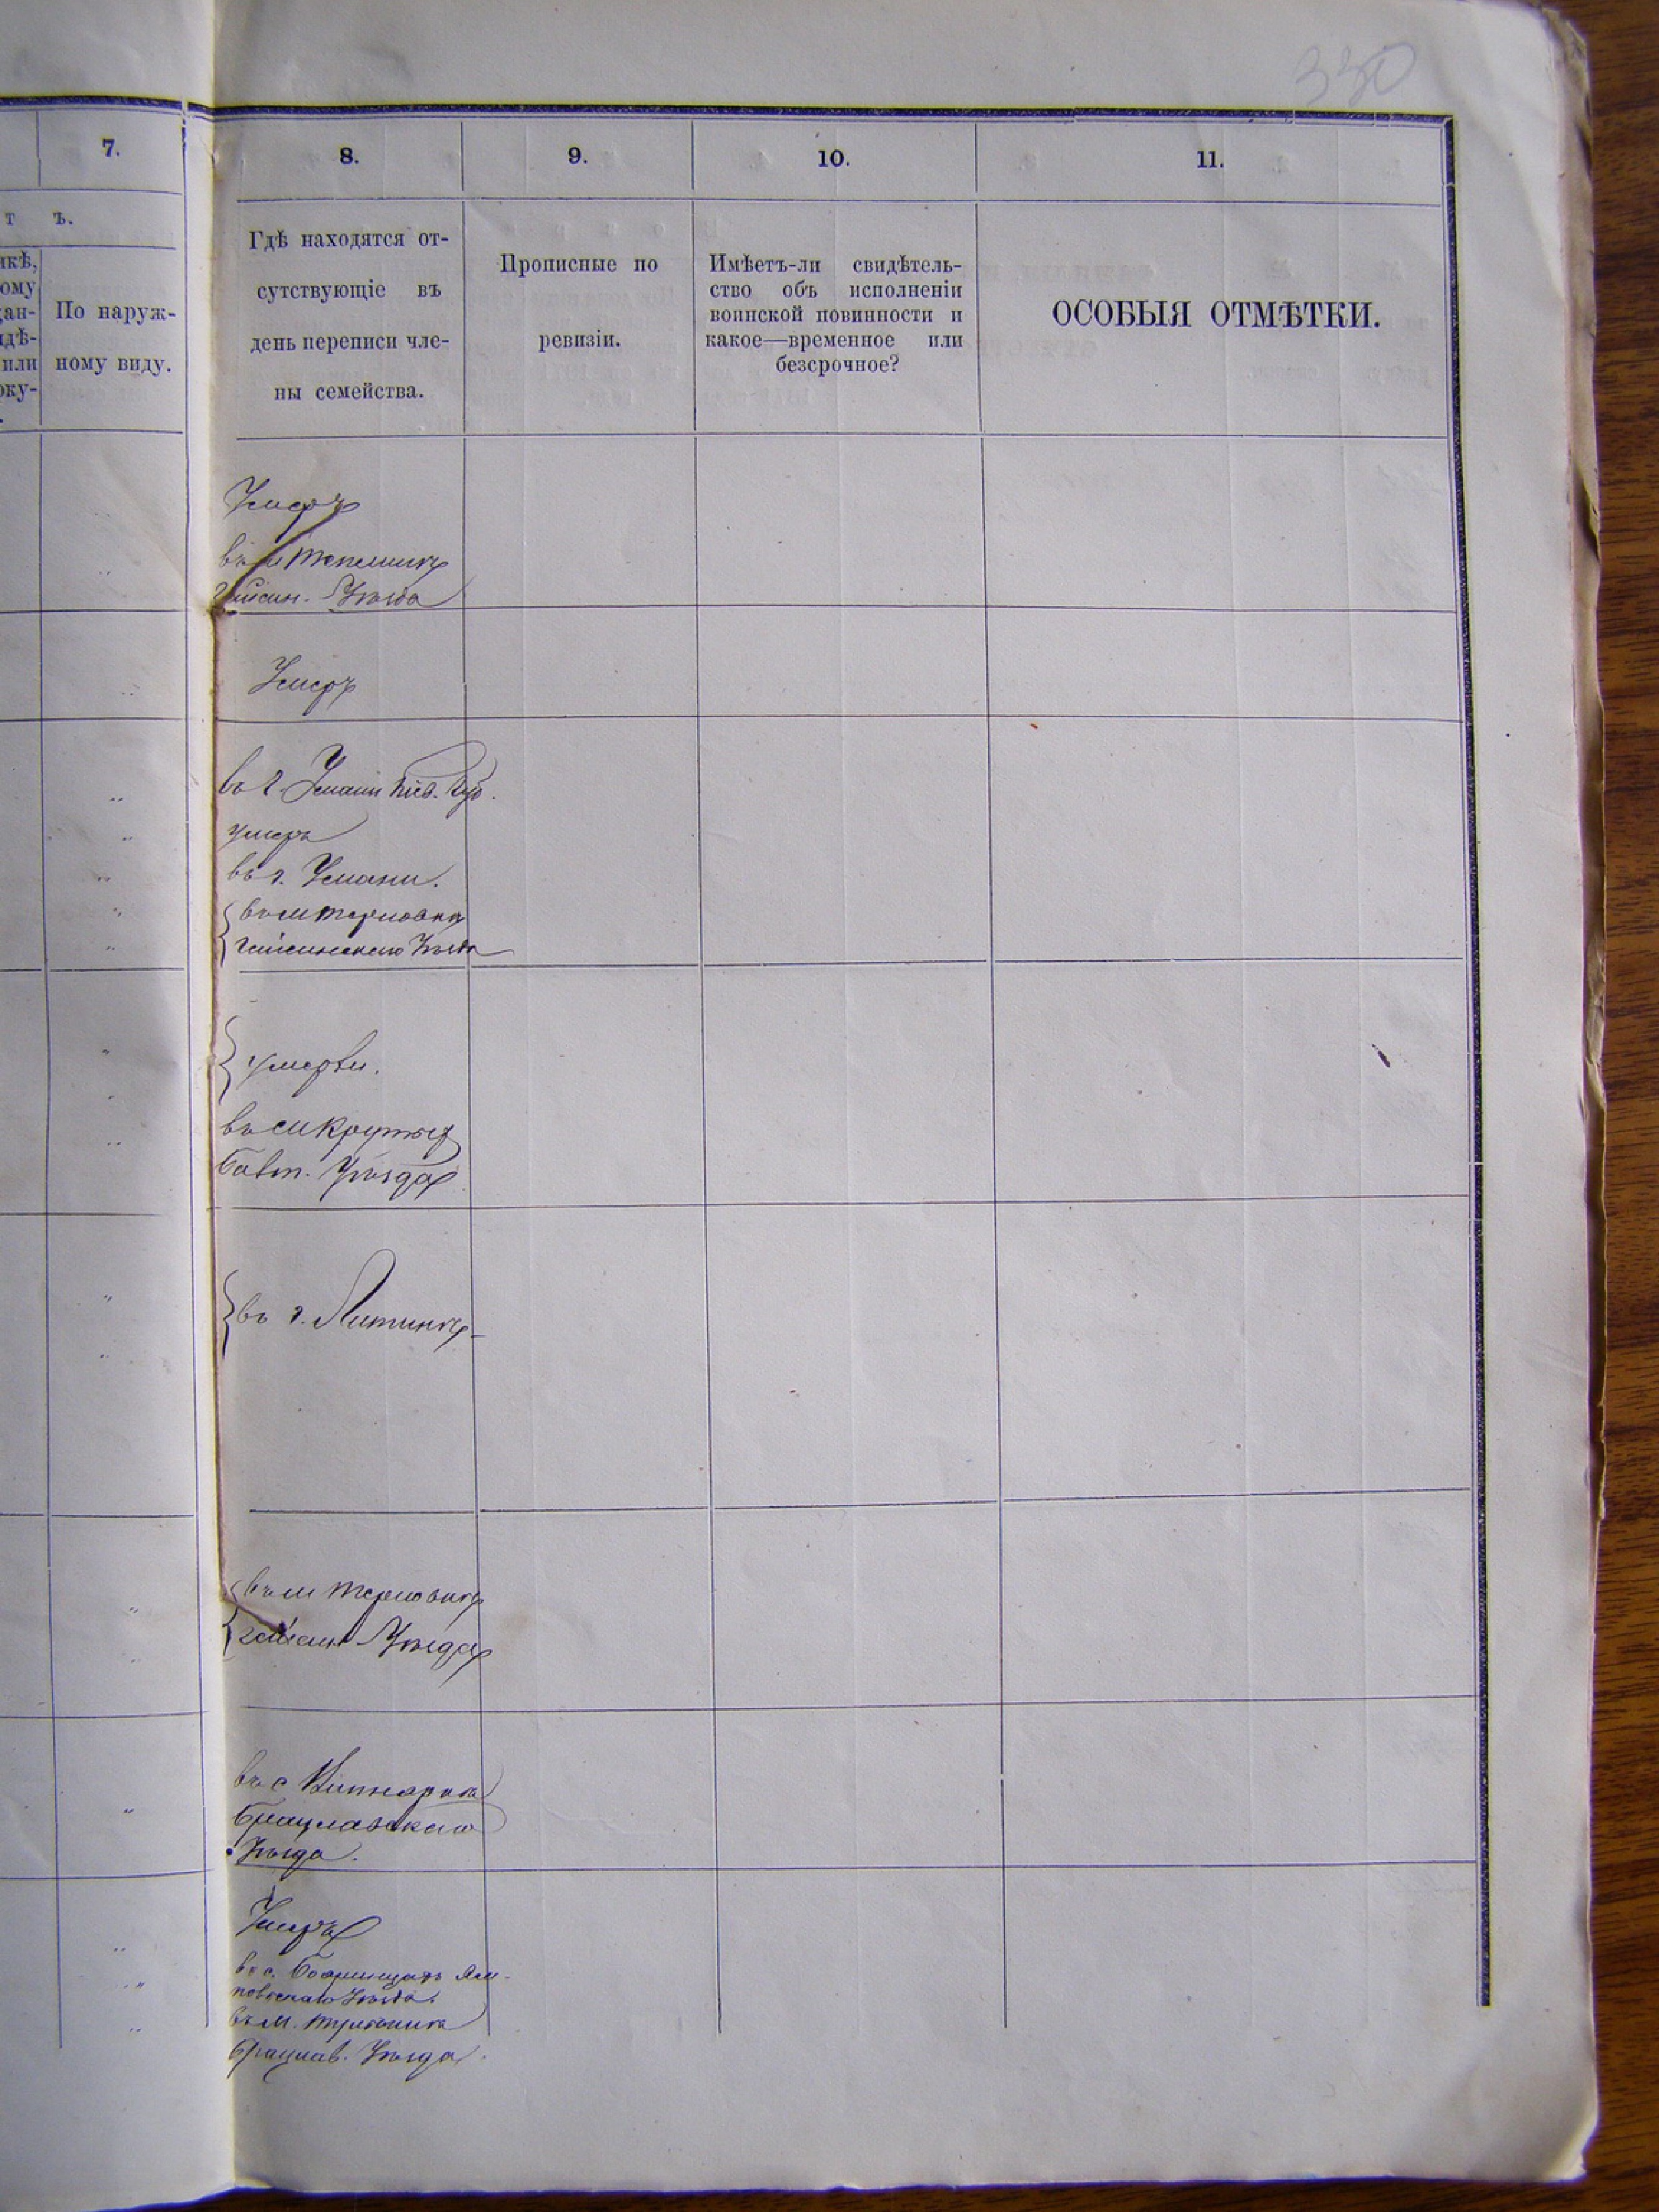 330
7.
8.
9.
10.
11.
т ъ.
По наруж-
ному виду.
Гдѣ находятся от-
сутствующіе въ
день переписи чле-
ны семейства.
Прописные по
ревизіи.
Имѣетъ-ли свидѣтель-
ство объ исполненіи
воинской повинности и
какое—временное или
безсрочное?
ОСОБЫЯ ОТМѢТКИ.
Умеръ
въ м Тепликѣ
Гайсин. Уѣзда
Умеръ
въ г. Умани Кіев. Губ.
умеръ
въ г. Умани.
въ м Терновкѣ
Гайсинскаго Уѣзда
умерли.
въ м Крутыя
Балт. Уѣзда
въ г. Литинѣ
въ м Терновкѣ
Гайсин Уѣзда
въ с
Брацлавскаго
Уѣзда.
Умеръ
въ с. Ям-
польскаго Уѣзда.
въ м.
Брацлав. Уѣзда.